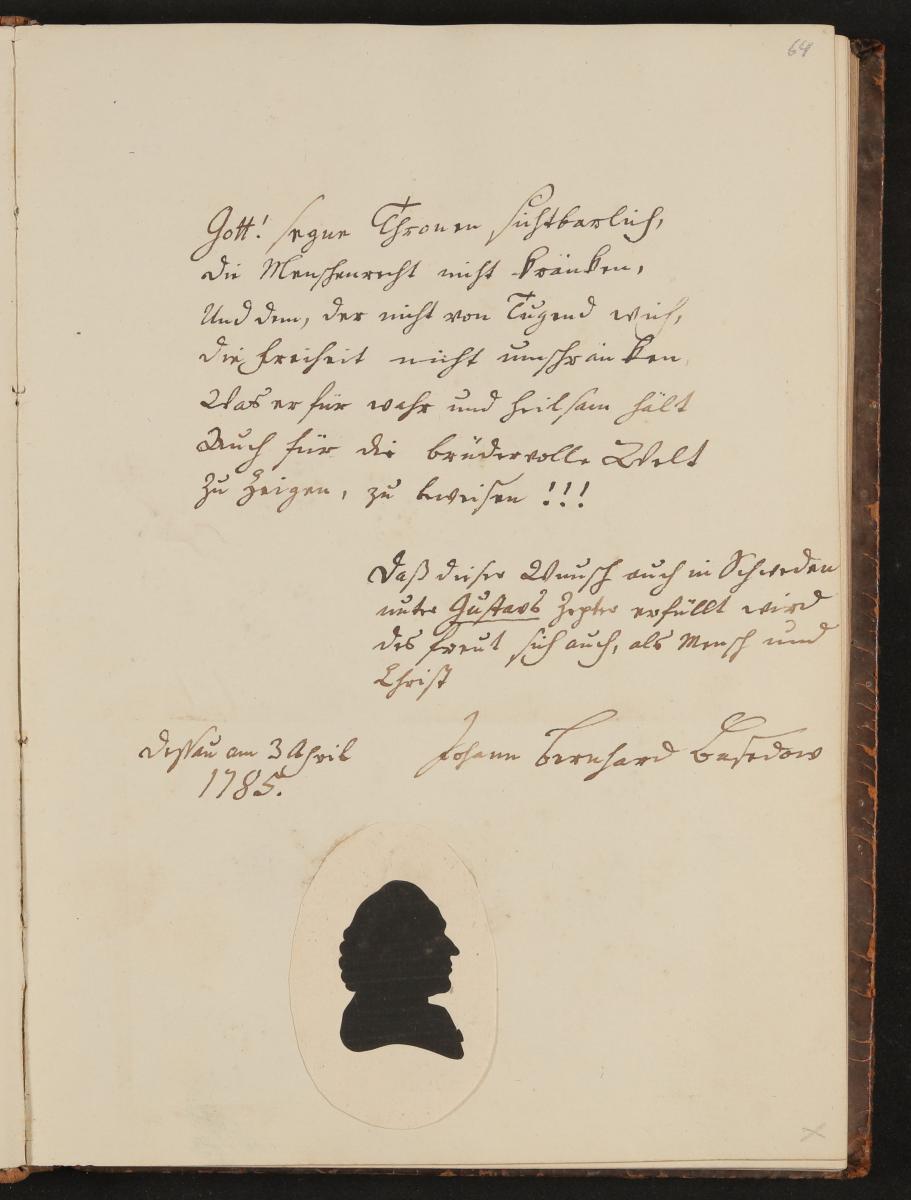 64
Gott! segne Thronen sichtbarlich,
die Menschenrecht nicht kränken,
Und dem, der nicht von Tugend wich,
die Freiheit nicht umschränken
Was er für wahr und heilsam hält
Auch für die brüdervolle Welt
Zu Zeigen, zu beweisen!!!
Daß dieser Wunsch auch in Schweden
unter Gustavs Zepter erfüllt wird
des freut sich auch, als Mensch und
Christ
Dessau am 3 April
1785.
Johann Bernhard Basedow